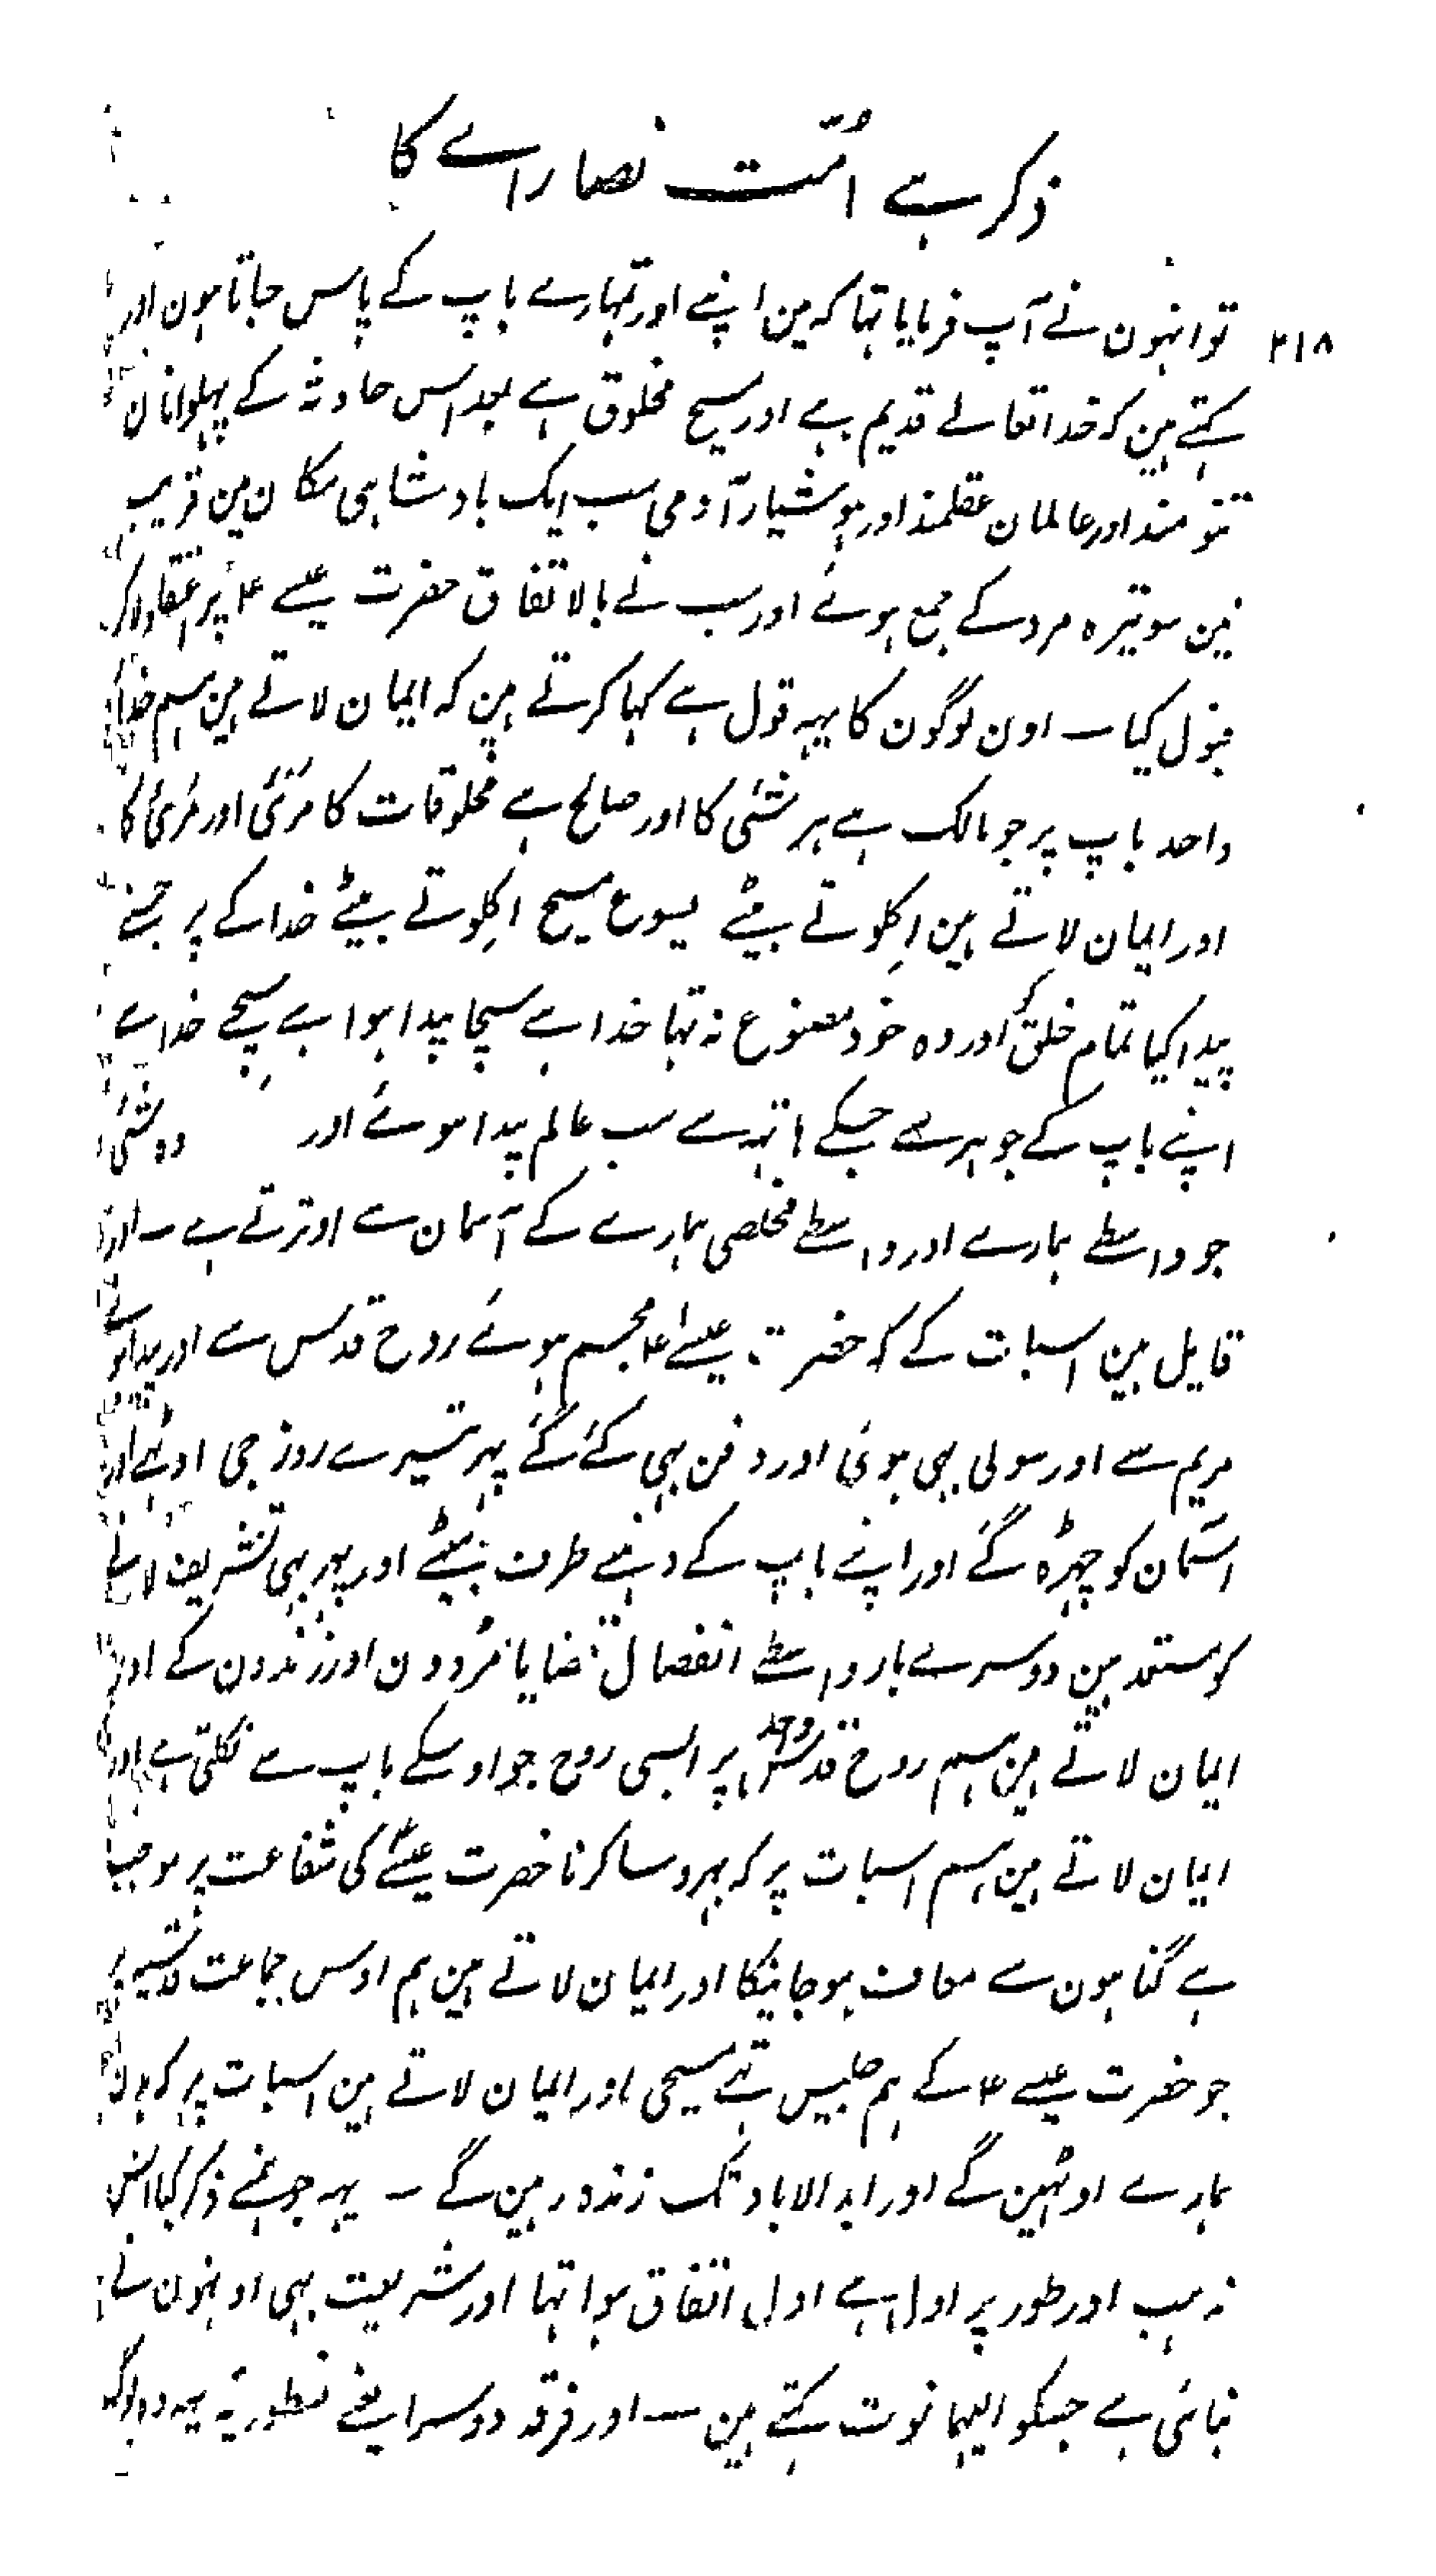 ذکر ہے امّت نصارا ے کا
۲۱۸
تو انہون نے آپ فرمایا تہا کہ مین اپنے اور تمہارے باپ کے پاس جاتا ہون اور
کہتے ہین کہ خدا تعالے قدیم ہے اور مسیح مخلوق ہے بعد اس حادثہ کے پہلوانان
تنومند اور عالمان عقلمند اور ہوشیار آدمی سب ایک بادشاہی مکان مین قریب
تین سو تیرہ مرد کے جمع ہوئے اور سب نے بالاتفاق حضرت عیسے ۴ پر اعتقاد لاکر
قبول کیا۔ اون لوگون کا یہہ قول ہے کہا کرتے ہین کہ ایمان لاتے ہین ہم خدائے
واحد باپ پر جو مالک ہے ہر شئی کا اور صالح ہے مخلوقات کا مرئی اور مرئی کا
اور ایمان لاتے ہین اِکلوتے بیٹے یسوع مسیح اِکلوتے بیٹے خدا کے پر جسنے
پیدا کیا تمام خلق کو اور وہ خود مصنوع نہ تہا خدا ہے سچا پیدا ہوا ہے سچے خدا سے
اپنے باپ کے جوہر سے جسکے اتہہ سے سب عالم پیدا ہوئے اور وہ شئی
جو واسطے ہمارے اور واسطے مخلصی ہمارے کے آسمان سے اوترتے ہے ۔ اور
قایل ہین اسبات کے کہ حضرت عیسےٰ ۴ مجسم ہوئے روح قدس سے اور پیدا ہوئے
مریم سے اور سولی بہی ہوئی اور دفن بہی کئے گئے پہر تیسرے روز جی اوٹہے اور
آسمان کو چہڑہ گئے اور اپنے باپ کے دہنے طرف بیٹہے اور پہر بہی تشریف لانے
کو مستعد ہین دوسرے بار واسطے انفصال قضایا مُردون اور زندون کے اور
ایمان لاتے ہین ہم روح قدس واحد پر ایسی روح جو اوسکے باپ سے نکلتی ہے اور
ایمان لاتے ہین ہم اسبات پر کہ بہروسا کرنا حضرت عیسےٰ کی شفاعت پر موجب
ہے گناہون سے معاف ہو جانیکا اور ایمان لاتے ہین ہم اوس جماعت قدسیہ پر
جو حضرت عیسے ۴ کے ہم جلیس تہے مسیحی اور ایمان لاتے ہین اسبات پر کہ بدن
ہمارے اوٹہین گے اور ابد الاباد تک زندہ رہین گے ۔ یہہ جو ہمنے ذکر کیا اس
مذہب اور طور پر اول ہے اول اتفاق ہوا تہا اور شریعت بہی اونہون نے
بنائی ہے جسکو الہیمانوت کہتے ہین ۔ اور فرقہ دوسرا یعنے نسطوریہ یہہ وہ لوگ